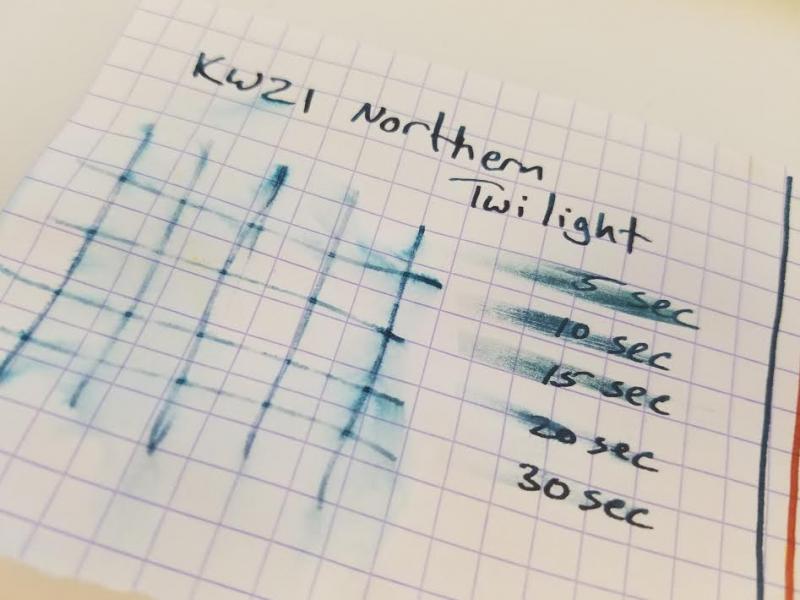 KWZI Northern
Twilight
5 sec
10 sec
15 sec
20 sec
30 sec